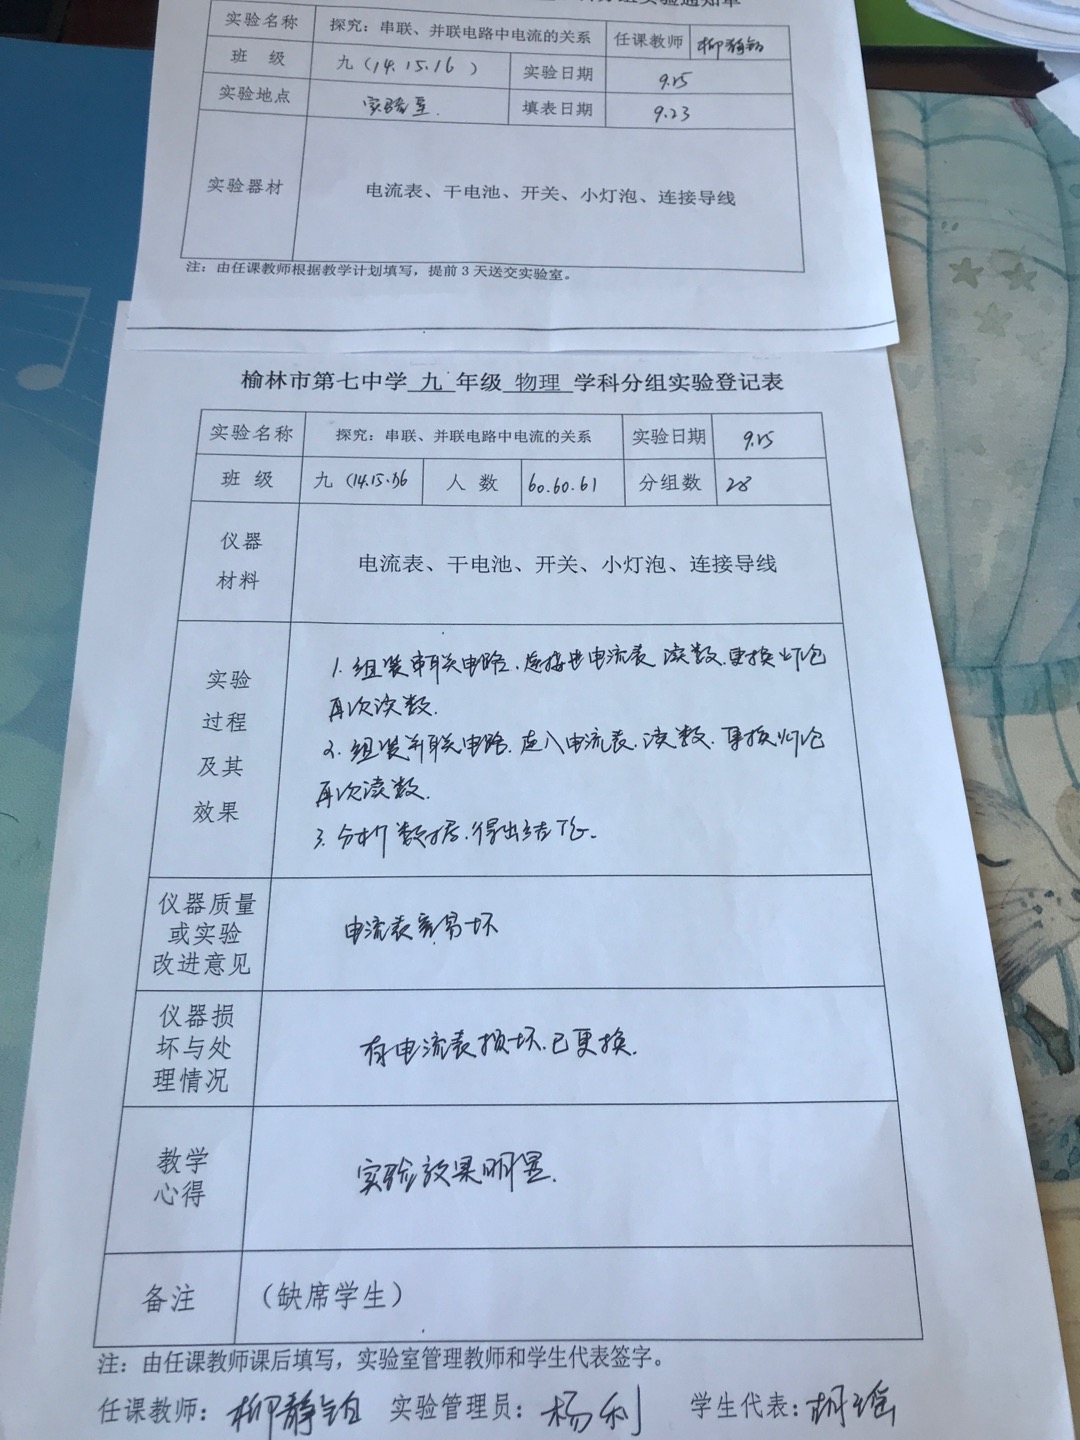 分组实验通知单
实验名称 探究：串联、并联电路中电流的关系 任课教师 柳静
班 级 九（14.15.16） 实验日期 9.25
实验地点 实验室. 填表日期 9.23
实验器材 电流表、干电池、开关、小灯泡、连接导线
注：由任课教师根据教学计划填写，提前 3 天送交实验室。
榆林市第七中学 九 年级 物理 学科分组实验登记表
实验名称 探究：串联、并联电路中电流的关系 实验日期 9.25
班 级 九（14.15.16 人 数 60.60.61 分组数 28
仪器
材料 电流表、干电池、开关、小灯泡、连接导线
实验
过程
及其
效果
1. 组装串联电路.连接电流表 读数.更换灯泡
再次读数.
2. 组装并联电路.连入电流表.读数.更换灯泡
再次读数.
3. 分析数据.得出结论.
仪器质量
或实验
改进意见
电流表容易坏
仪器损
坏与处
理情况
有电流表损坏.已更换.
教学
心得
实验效果明显.
备注 （缺席学生）
注：由任课教师课后填写，实验室管理教师和学生代表签字。
任课教师：柳静 实验管理员：杨利 学生代表：胡瑶